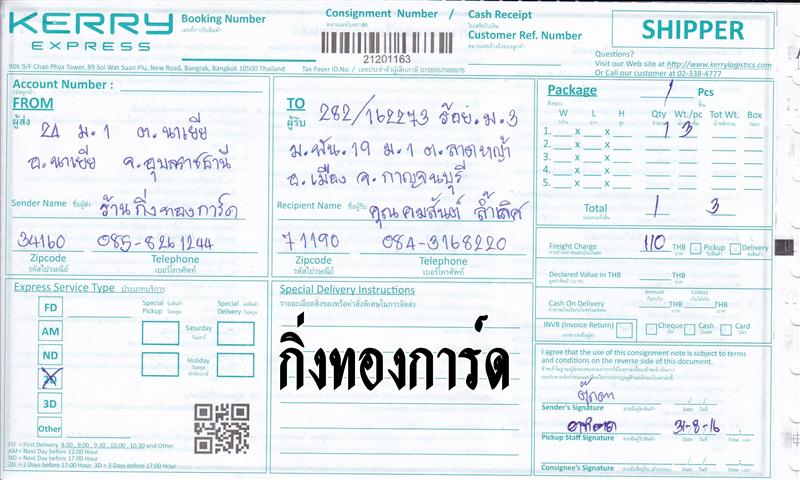 KERRY EXPRESS
Booking Number
เลขที่การรับสินค้า
Consignment Number / Cash Receipt
หมายเลขใบตราส่ง / ใบเสร็จรับเงิน
Customer Ref. Number
หมายเลขอ้างอิงของลูกค้า
21201163
SHIPPER
Questions?
Visit our Web site at http://www.kerrylogistics.com
Or Call our customer at 02-338-4777
906 9/F Chao Phya Tower, 89 Soi Wat Suan Plu, New Road, Bangrak, Bangkok 10500 Thailand
Tax Payer ID.No./ เลขประจำตัวผู้เสียภาษี 0105557008976
Account Number :
รหัสลูกค้า
FROM
ผู้ส่ง
24 ม.1 ต.นาเยีย
อ.นาเยีย จ.อุบลราชธานี
Sender Name ชื่อผู้ส่ง ร้านกิ่งทองการ์ด
34160 085-8261244
Zipcode Telephone
รหัสไปรษณีย์ เบอร์โทรศัพท์
TO
ผู้รับ
282/162273 ร้อย.ม.3
ม.พัน.19 ม.1 ต.ลาดหญ้า
อ.เมือง จ.กาญจนบุรี
Recipient Name ชื่อผู้รับ คุณคมสันต์ ล้ำเลิศ
71190 084-3168220
Zipcode Telephone
รหัสไปรษณีย์ เบอร์โทรศัพท์
Package 1 Pcs
สิ่งของ ชิ้น
W L H Qty Wt./pc Tot Wt. Box
1. x x 1 3
2. x x
3. x x
4. x x
5. x x
Total 1 3
Freight Charge 110 THB Pickup Delivery
Declared Value in THB
Amount Collect
Cash On Delivery THB
INVR (Invoice Return) Cheque Cash Card
Express Service Type ประเภทบริการ
FD
AM
ND
2D
3D
Other
Special Pickup
Special Delivery
Saturday
วันเสาร์
Holiday
วันหยุด
FD = First Delivery 8.00, 9.00, 9.30, 10.00, 10.30 and Other
AM = Next Day before 12:00 Hour
ND = Next Day before 17:00 Hour
2D = 2 Days before 17:00 Hour 3D = 3 Days before 17:00 Hour
Special Delivery Instructions
รายละเอียดสิ่งของหรือคำสั่งพิเศษในการจัดส่ง
กิ่งทองการ์ด
I agree that the use of this consignment note is subject to terms
and conditions on the reverse side of this document.
Sender's Signature Date Time
31-8-16
Pickup Staff Signature Date Time
Consignee's Signature Date Time